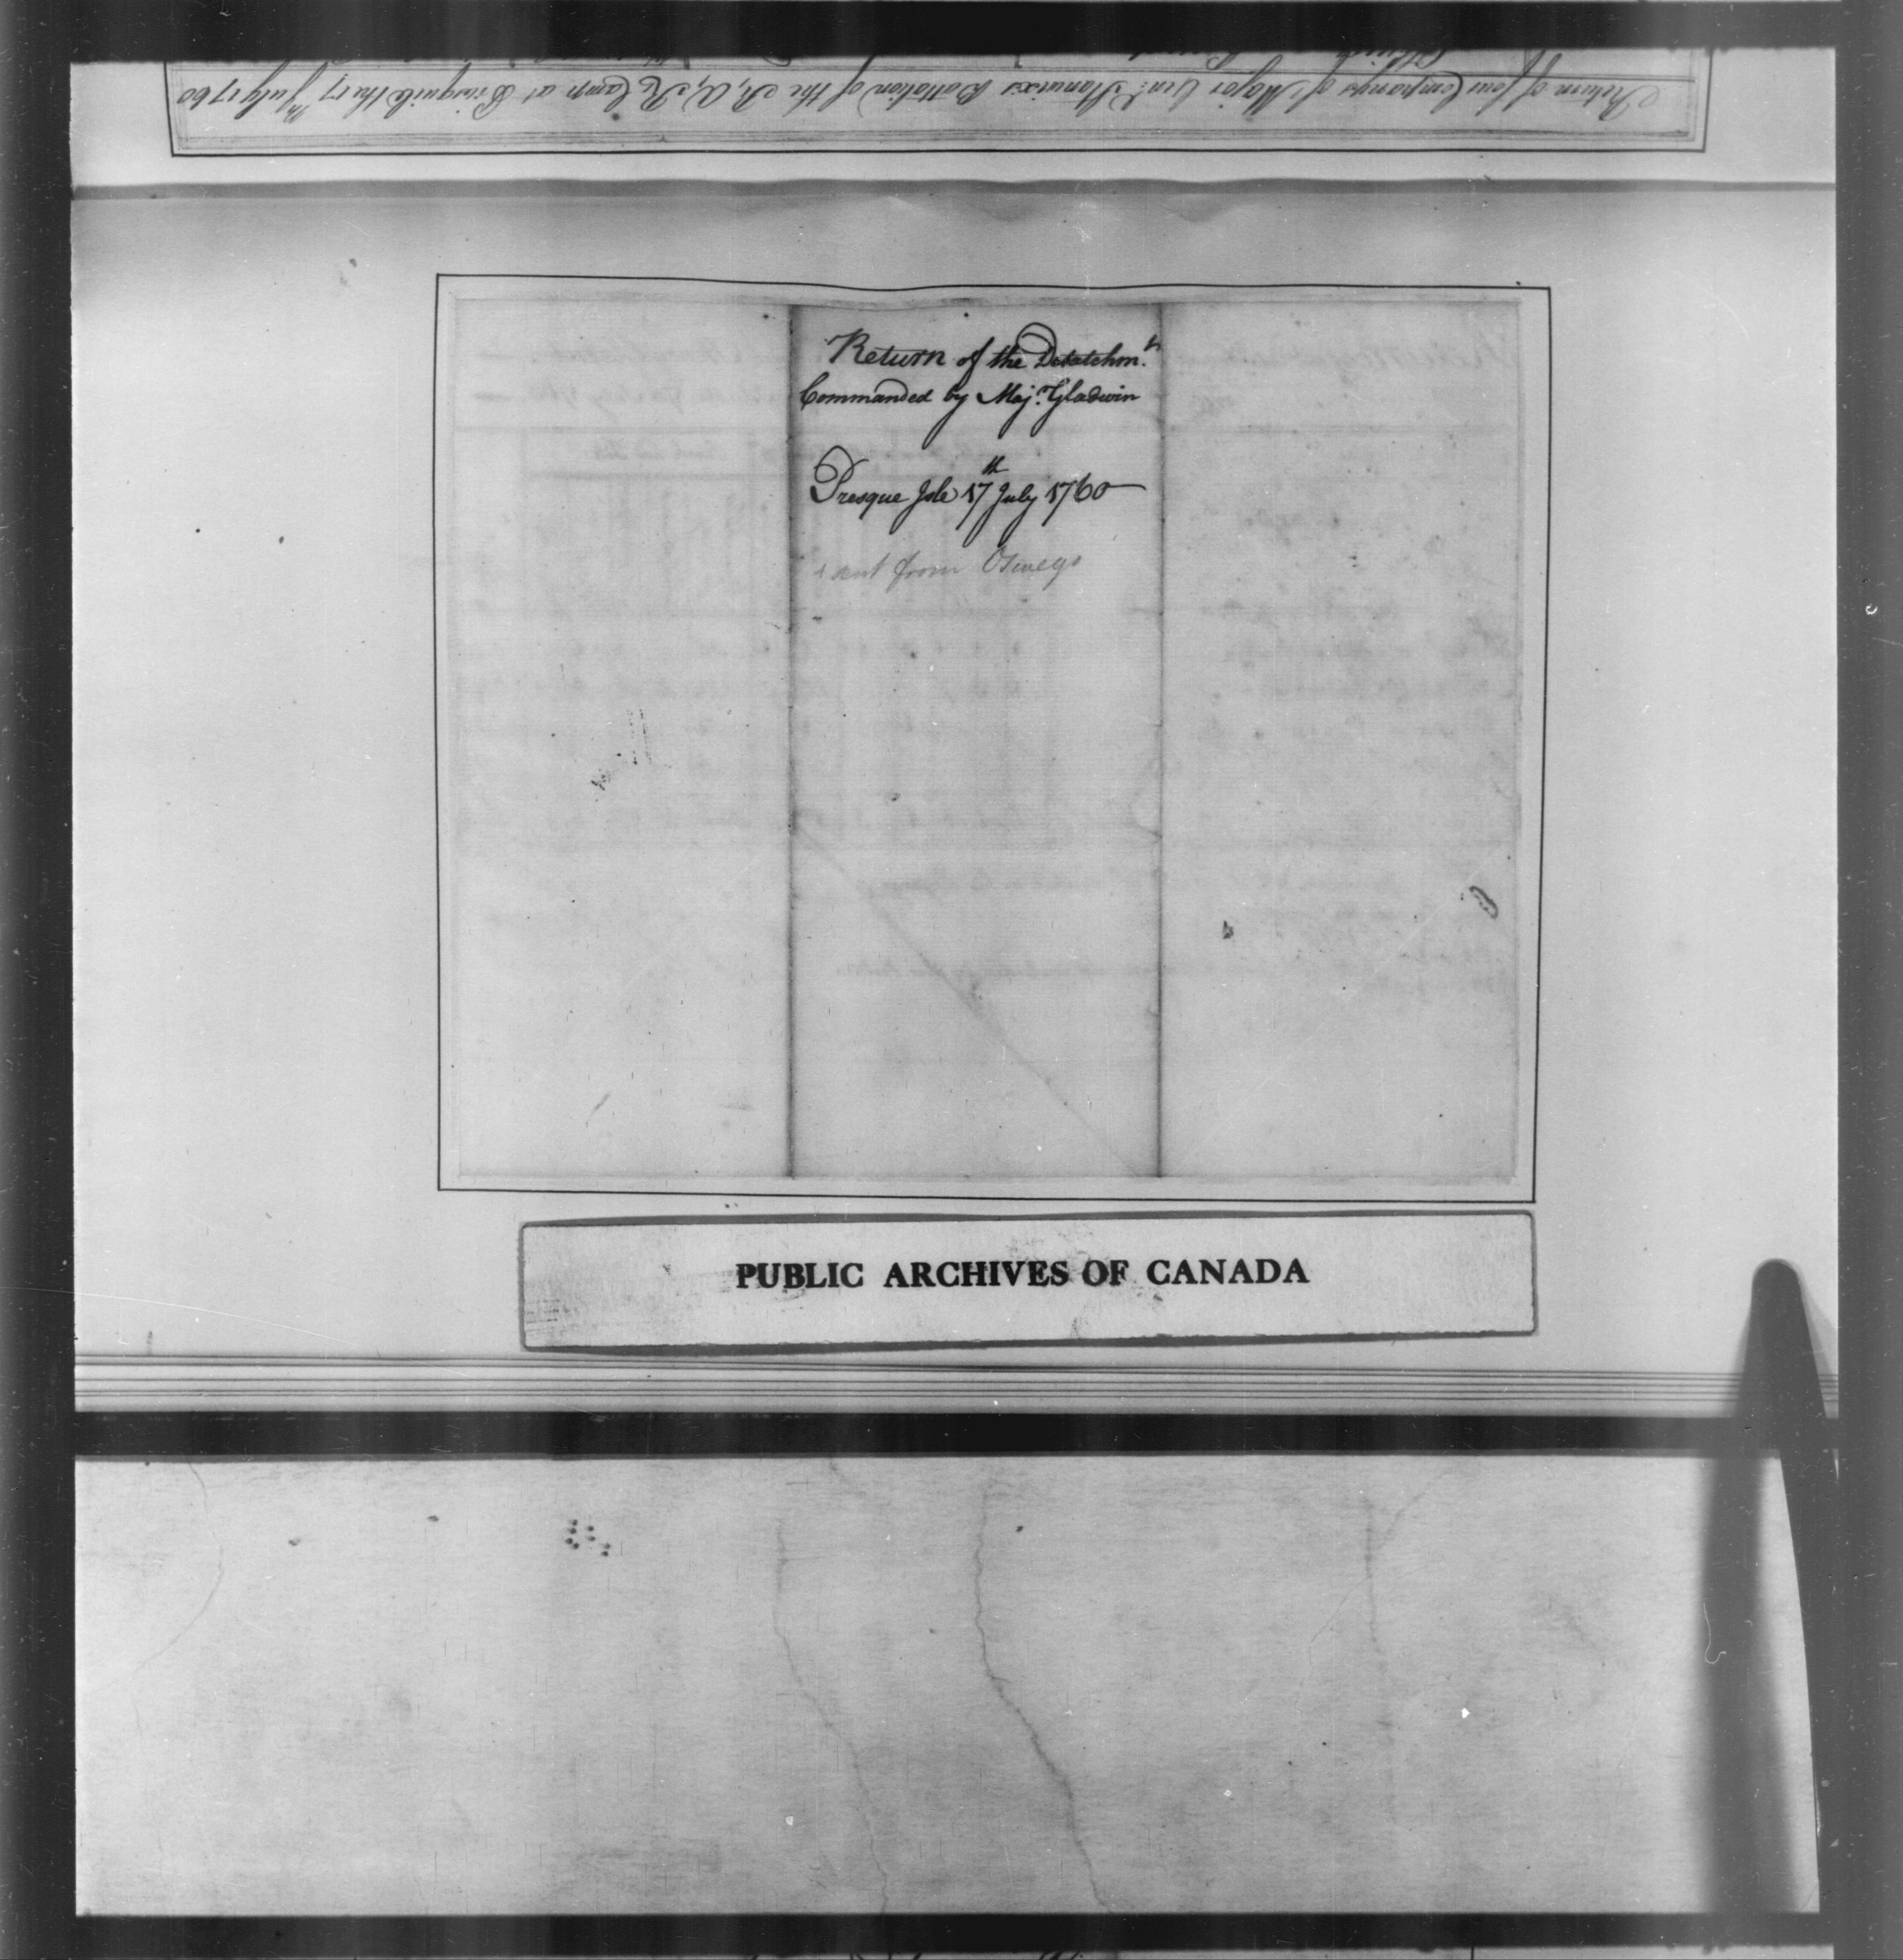 Return of four Companys of Major Genl. Stanwix's Battalion of the R, A, R, Camp at Prisquile the 17th July 1760
Return of the Detatchm.t
Commanded by Maj.r Gladwin
Presque Isle 17th July 1760
sent from Oswego
PUBLIC ARCHIVES OF CANADA